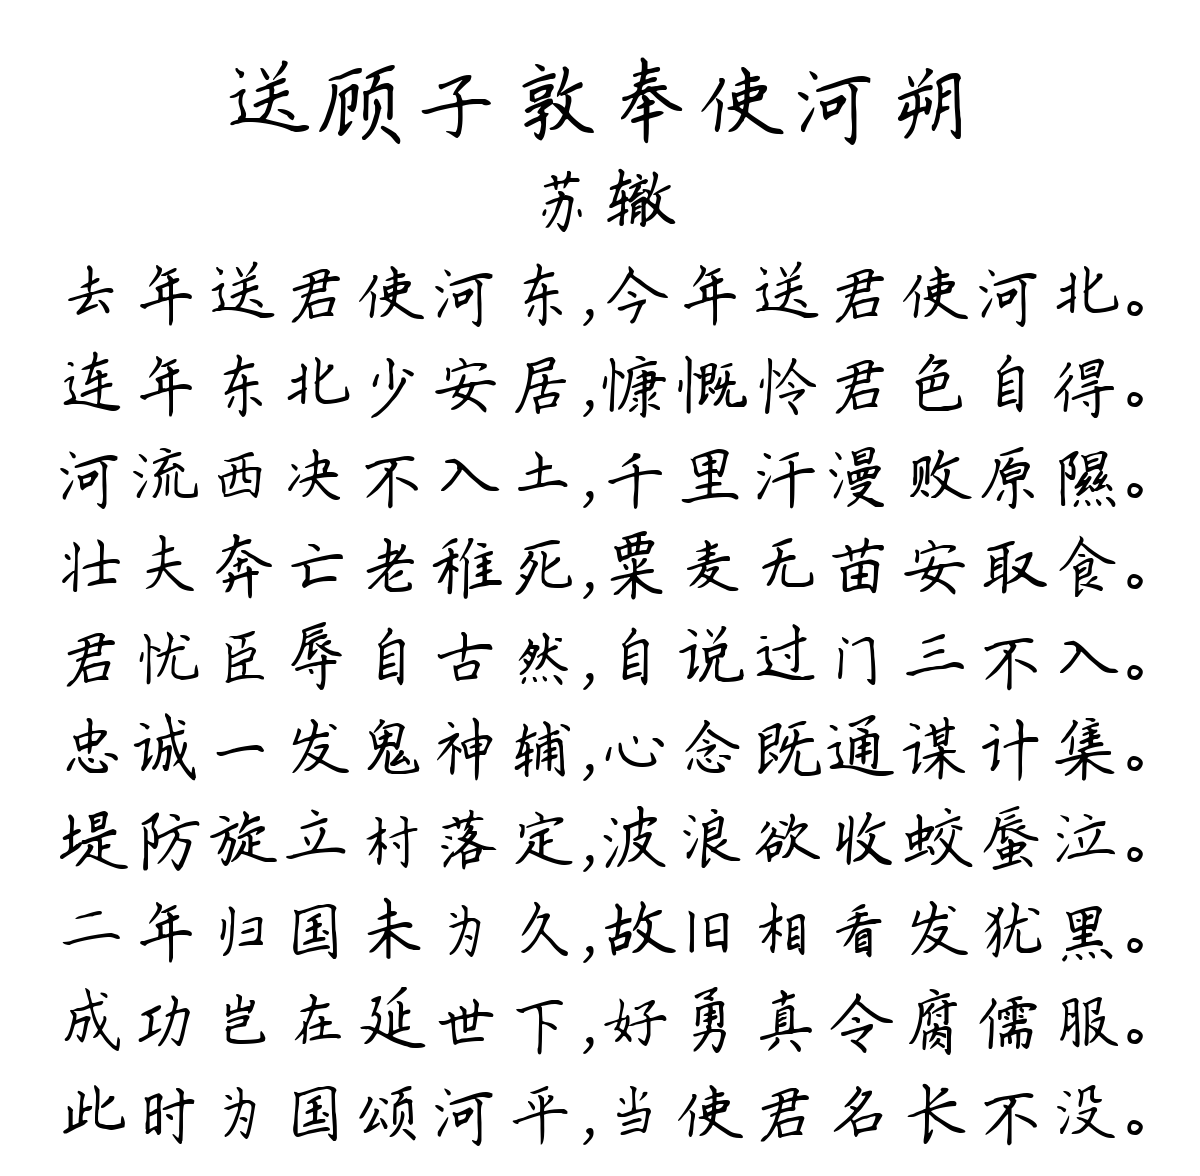 送顾子敦奉使河朔
苏辙
去年送君使河东,今年送君使河北。
连年东北少安居,慷慨怜君色自得。
河流西决不入土,千里汗漫败原隰。
壮夫奔亡老稚死,粟麦无苗安取食。
君忧臣辱自古然,自说过门三不入。
忠诚一发鬼神辅,心念既通谋计集。
堤防旋立村落定,波浪欲收蛟蜃泣。
二年归国未为久,故旧相看发犹黑。
成功岂在延世下,好勇真令腐儒服。
此时为国颂河平,当使君名长不没。